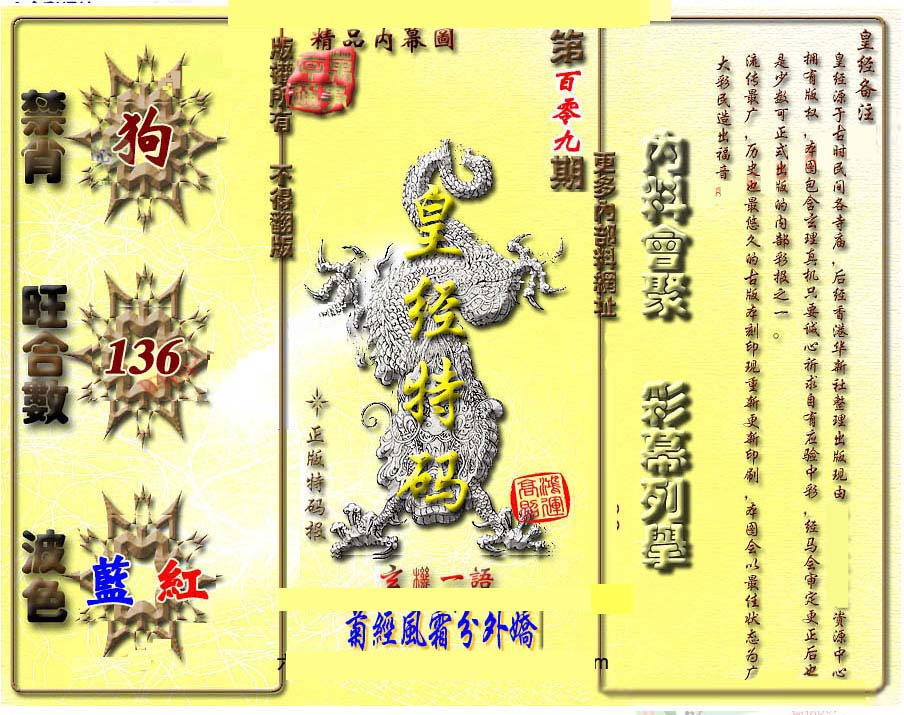 精品內幕圖
版權所有 不得翻版
禁肖
狗
旺合數
136
波色
藍 紅
第百零九期
皇经特码
正版特码报
鴻運高照
玄機一語
菊經風霜分外嬌
m
更多內部料網址
內料會聚 彩幕列舉
皇经备注
皇经源于古时民间各寺庙,后经香港华新社整理出版现由 资源中心
拥有版权,本图包含玄理真机只要诚心祈求自有应验中彩,经马会审定更正后也
是少数可正式出版的内部彩报之一。
流传最广,历史也最悠久的古版本刻印现重新更新印刷,本图会以最佳状态为广
大彩民造出福音